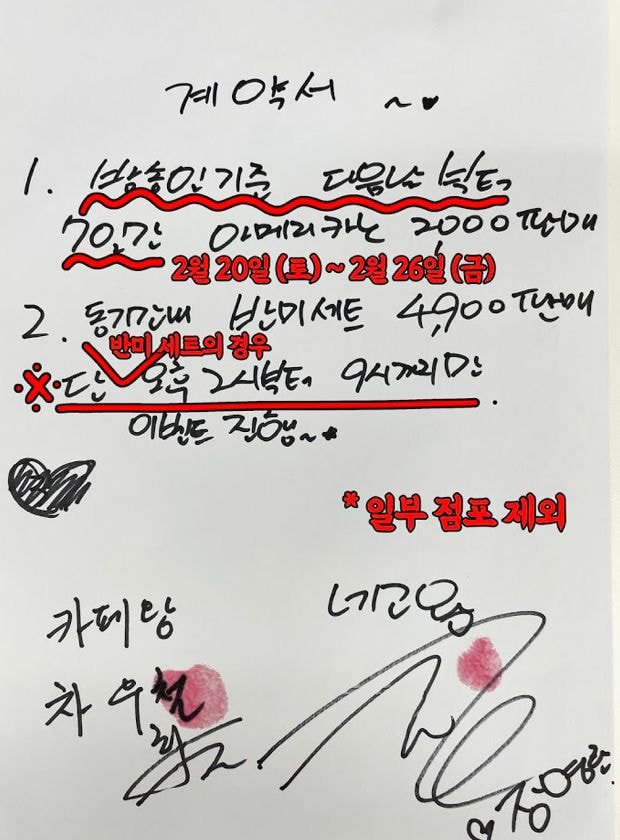 계약서 ~♥
1. 방송인기준 다음날 부터
7일간 아메리카노 2,000 판매
2월 20일 (토) ~ 2월 26일 (금)
2. 동기간내 반미세트 4,900 판매
반미 세트의 경우
※ 단 오후 2시부터 9시까지만.
이벤트 진행~*
* 일부 점포 제외
카페왕 네고왕
차우철
♡장영란